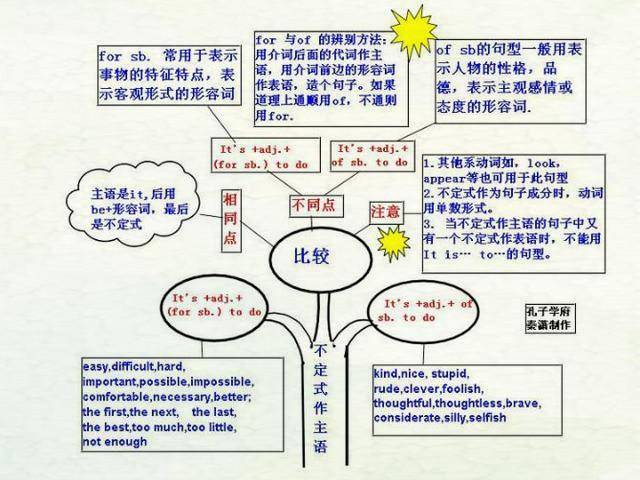 for sb. 常用于表示
事物的特征特点，表
示客观形式的形容词
for 与of 的辨别方法：
用介词后面的代词作主
语，用介词前边的形容词
作表语，造个句子。如果
道理上通顺用of，不通则
用for.
of sb的句型一般用表
示人物的性格，品
德，表示主观感情或
态度的形容词.
It's +adj.+
(for sb.) to do
It's +adj.+
of sb. to do
主语是it,后用
be+形容词，最后
是不定式
相
同
点
不同点
注意
1.其他系动词如，look，
appear等也可用于此句型
2.不定式作为句子成分时，动词
用单数形式。
3. 当不定式作主语的句子中又
有一个不定式作表语时，不能用
It is… to…的句型。
比较
It's +adj.+
(for sb.) to do
It's +adj.+ of
sb. to do
孔子学府
秦潇制作
easy,difficult,hard,
important,possible,impossible,
comfortable,necessary,better;
the first,the next, the last,
the best,too much,too little,
not enough
不
定
式
作
主
语
kind,nice, stupid,
rude,clever,foolish,
thoughtful,thoughtless,brave,
considerate,silly,selfish